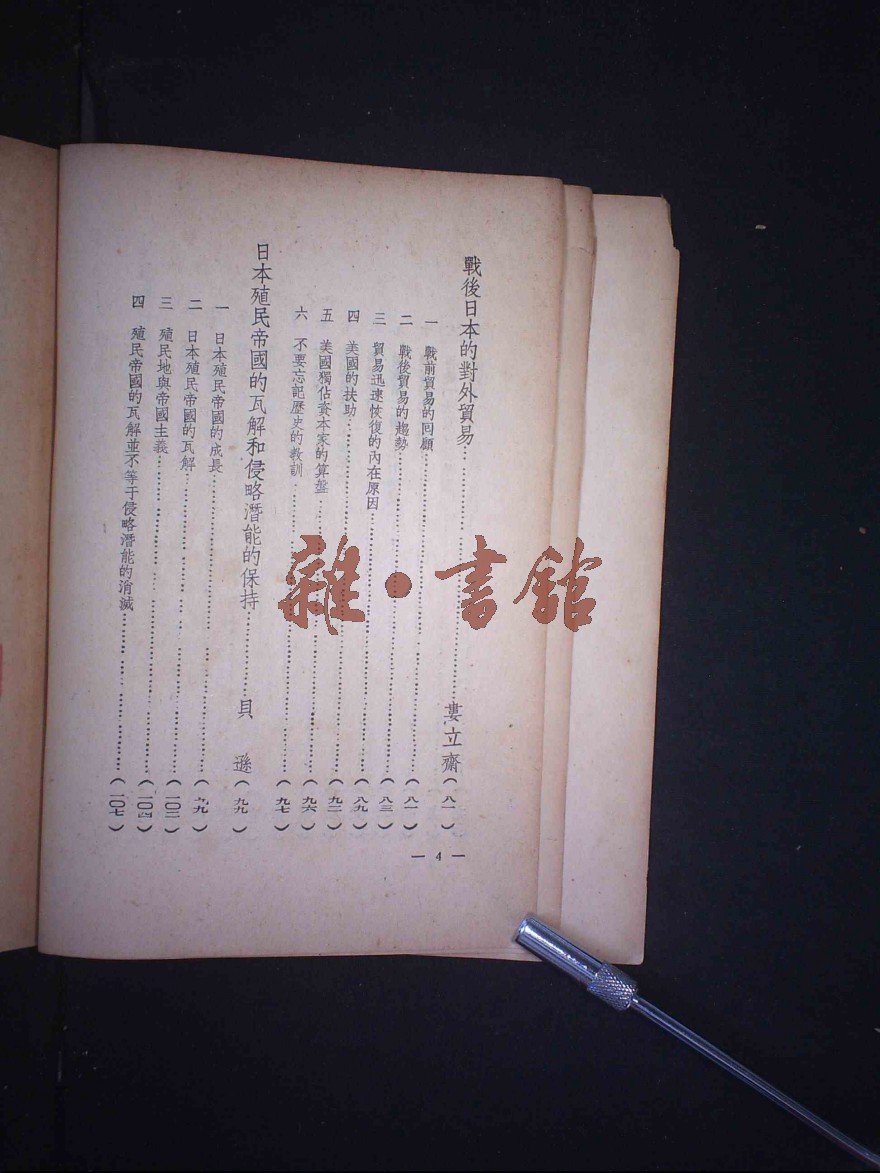 戰後日本的對外貿易……………………婁立齋（八一）
一　戰前貿易的回顧……………………（八一）
二　戰後貿易的趨勢……………………（八三）
三　貿易迅速恢復的內在原因……………………（八九）
四　美國的扶助……………………（九二）
五　美國獨佔資本家的算盤……………………（九六）
六　不要忘記歷史的教訓……………………（九七）
日本殖民帝國的瓦解和侵略潛能的保持……………貝　遜（九九）
一　日本殖民帝國的成長……………………（九九）
二　日本殖民帝國的瓦解……………………（一〇二）
三　殖民地與帝國主義……………………（一〇四）
四　殖民帝國的瓦解並不等于侵略潛能的消滅……………………（一〇七）
— 4 —
雜·書館